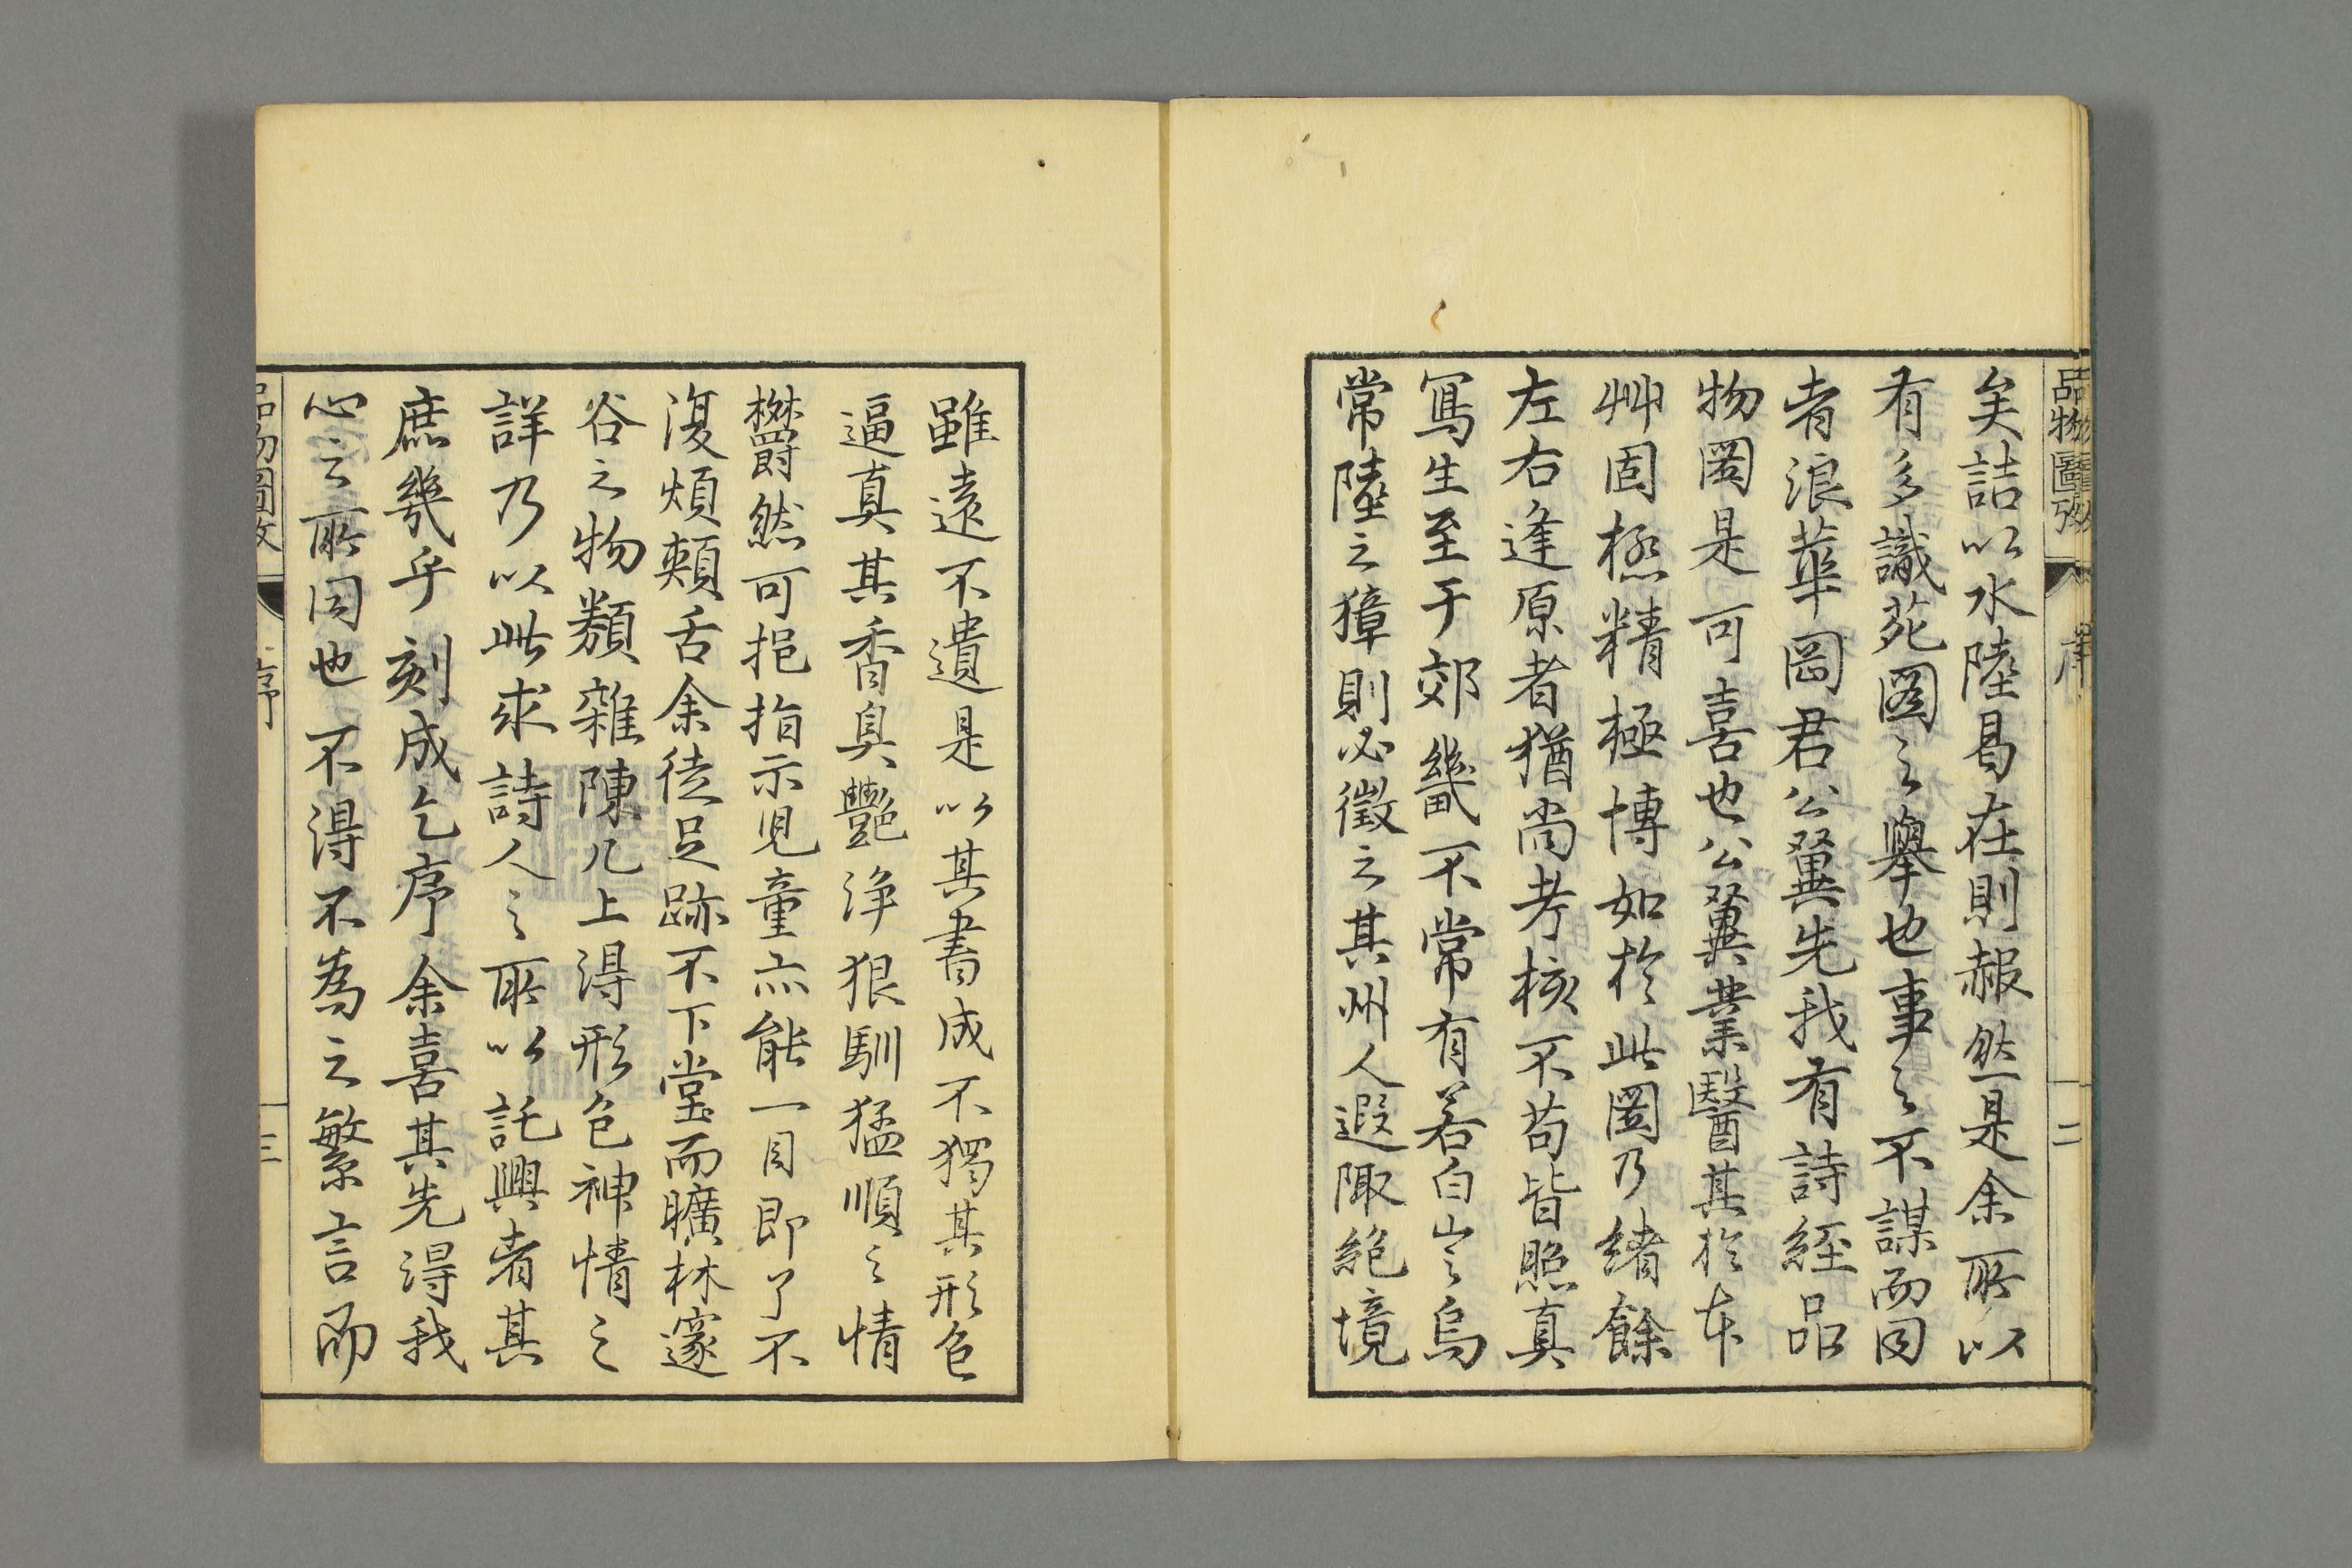 矣詰以水陸曷在則赧然是余所以
有多識苑圖之擧也事之不謀而同
者浪華岡君公翼先我有詩經品
物圖是可喜也公翼業醫其於本
艸固極精極博如於此圖乃緒餘
左右逢原者猶尚考核不苟皆照真
寫生至于郊畿不常有若白山之烏
常陸之獐則必徵之其州人遐陬絕境
雖遠不遺是以其書成不獨其形色
逼真其香臭艷淨狠馴猛順之情
欝然可挹指示児童亦能一目即了不
復煩頰舌余徒足跡不下堂而曠林邃
谷之物類雜陳几上得形色神情之
詳乃以此求詩人之所以託興者其
庶幾乎刻成乞序余喜其先得我
心之所同也不得不為之繁言而
品物圖攷
序
二
品物圖攷
序
三